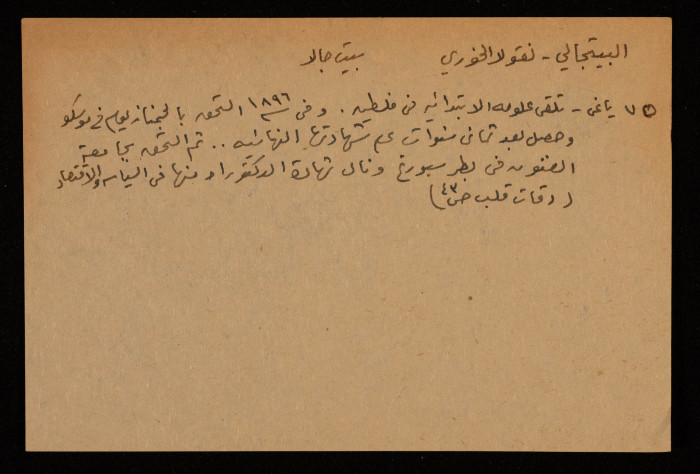 البيتجالي - نقولا الخوري بيت جالا
٧٥ ياغي - تلقى علومه الابتدائية في فلسطين. وفي سنة ١٨٩٦ التحق بالجمنازيوم في موسكو
وحصل بعد ثماني سنوات على شهادتها النهائية .. ثم التحق بجامعة
الفنون في بطرسبورغ ونال شهادة الدكتوراه منها في السياسة والاقتصاد
( دقات قلب ص ٤٣ )